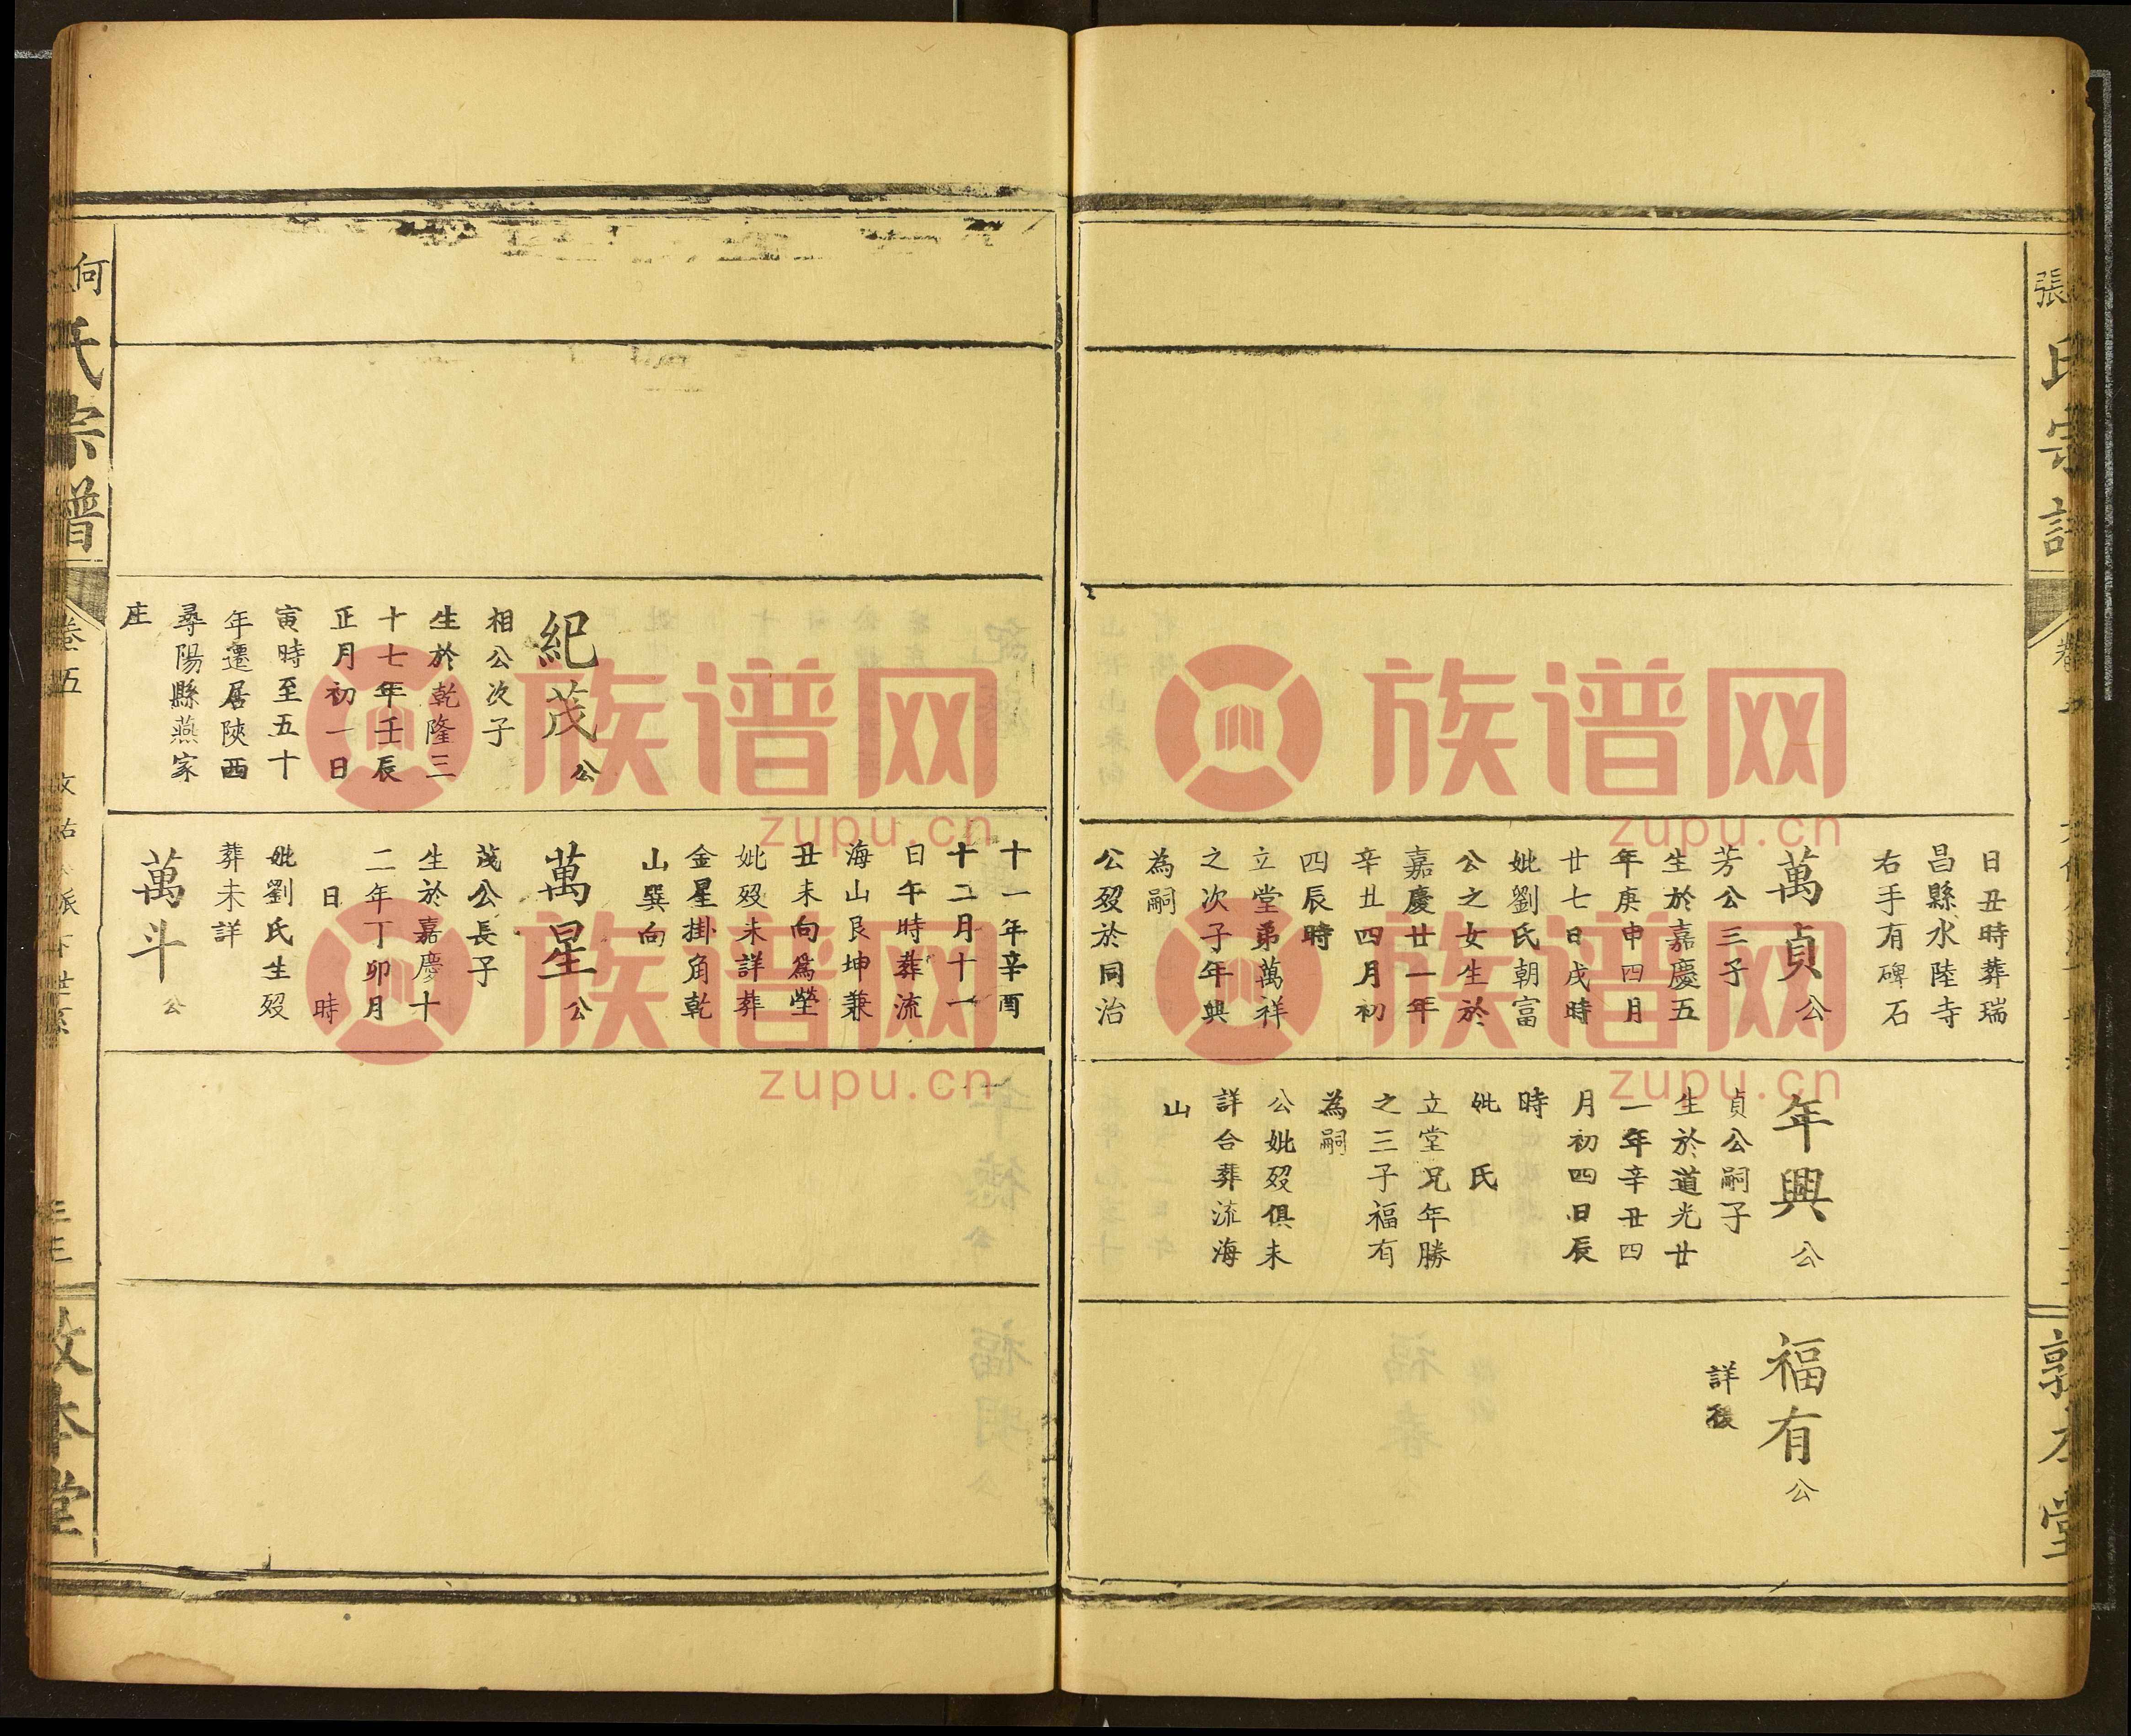 張氏宗譜
日丑時葬瑞
昌縣水陸寺
右手有碑石
萬貞公
芳公三子
生於嘉慶五
年庚申四月
廿七日戌時
妣劉氏朝富
公之女生於
嘉慶廿一年
辛丑四月初
四辰時
立堂弟萬祥
之次子年興
為嗣
公歿於同治
年興公
貞公嗣子
生於道光廿
一年辛丑四
月初四日辰
時
妣 氏
立堂兄年勝
之三子福有
為嗣
公妣歿俱未
詳合葬流海
山
福有公
詳後
紀茂公
相公次子
生於乾隆三
十七年壬辰
正月初一日
寅時至五十
年遷居陝西
尋陽縣燕家
庄
十一年辛酉
十二月十一
日午時葬流
海山艮坤兼
丑未向爲塋
妣歿未詳葬
金星掛角乾
山巽向
萬星公
茂公長子
生於嘉慶十
二年丁卯月
日 時
妣劉氏生歿
葬未詳
萬斗公
何氏宗譜
卷五
敦本堂
族谱网
zupu.cn
族谱网
zupu.cn
族谱网
zupu.cn
族谱网
zupu.cn